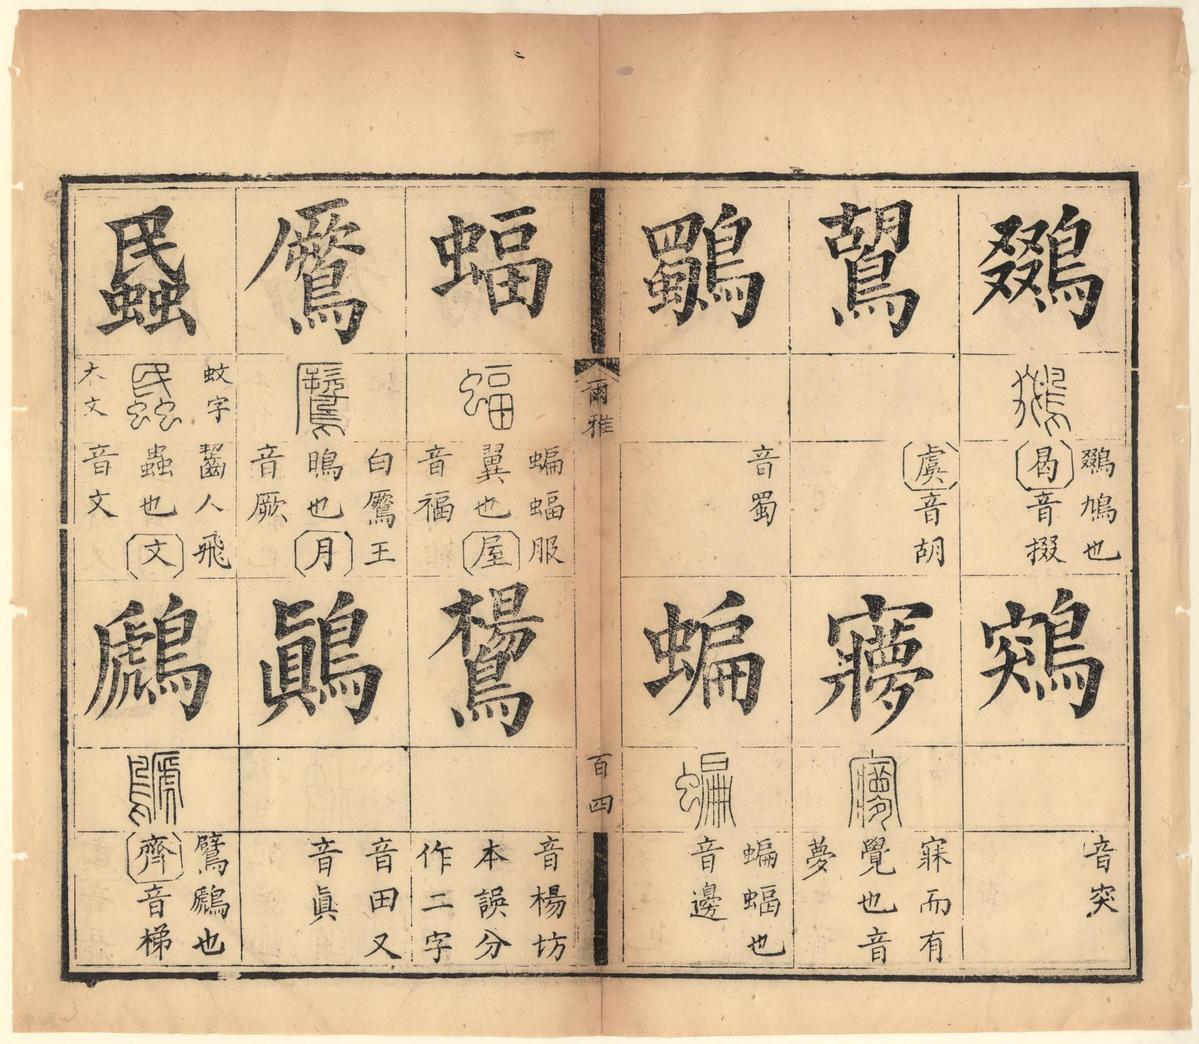 鵽
鵽鳩也
曷音掇
鶟
音突
鶘
虞音胡
㝱
寐而有
覺也音
夢
鸀
音蜀
蝙
蝙蝠也
音邊
爾雅
百四
蝠
蝙蝠服
翼也屋
音福
鸉
音楊坊
本誤分
作二字
鷢
白鷢王
鴡也月
音厥
鷏
音田又
音眞
蟁
蚊字
齧人飛
蟲也文
本文
音文
鷉
鷿鷉也
齊音梯